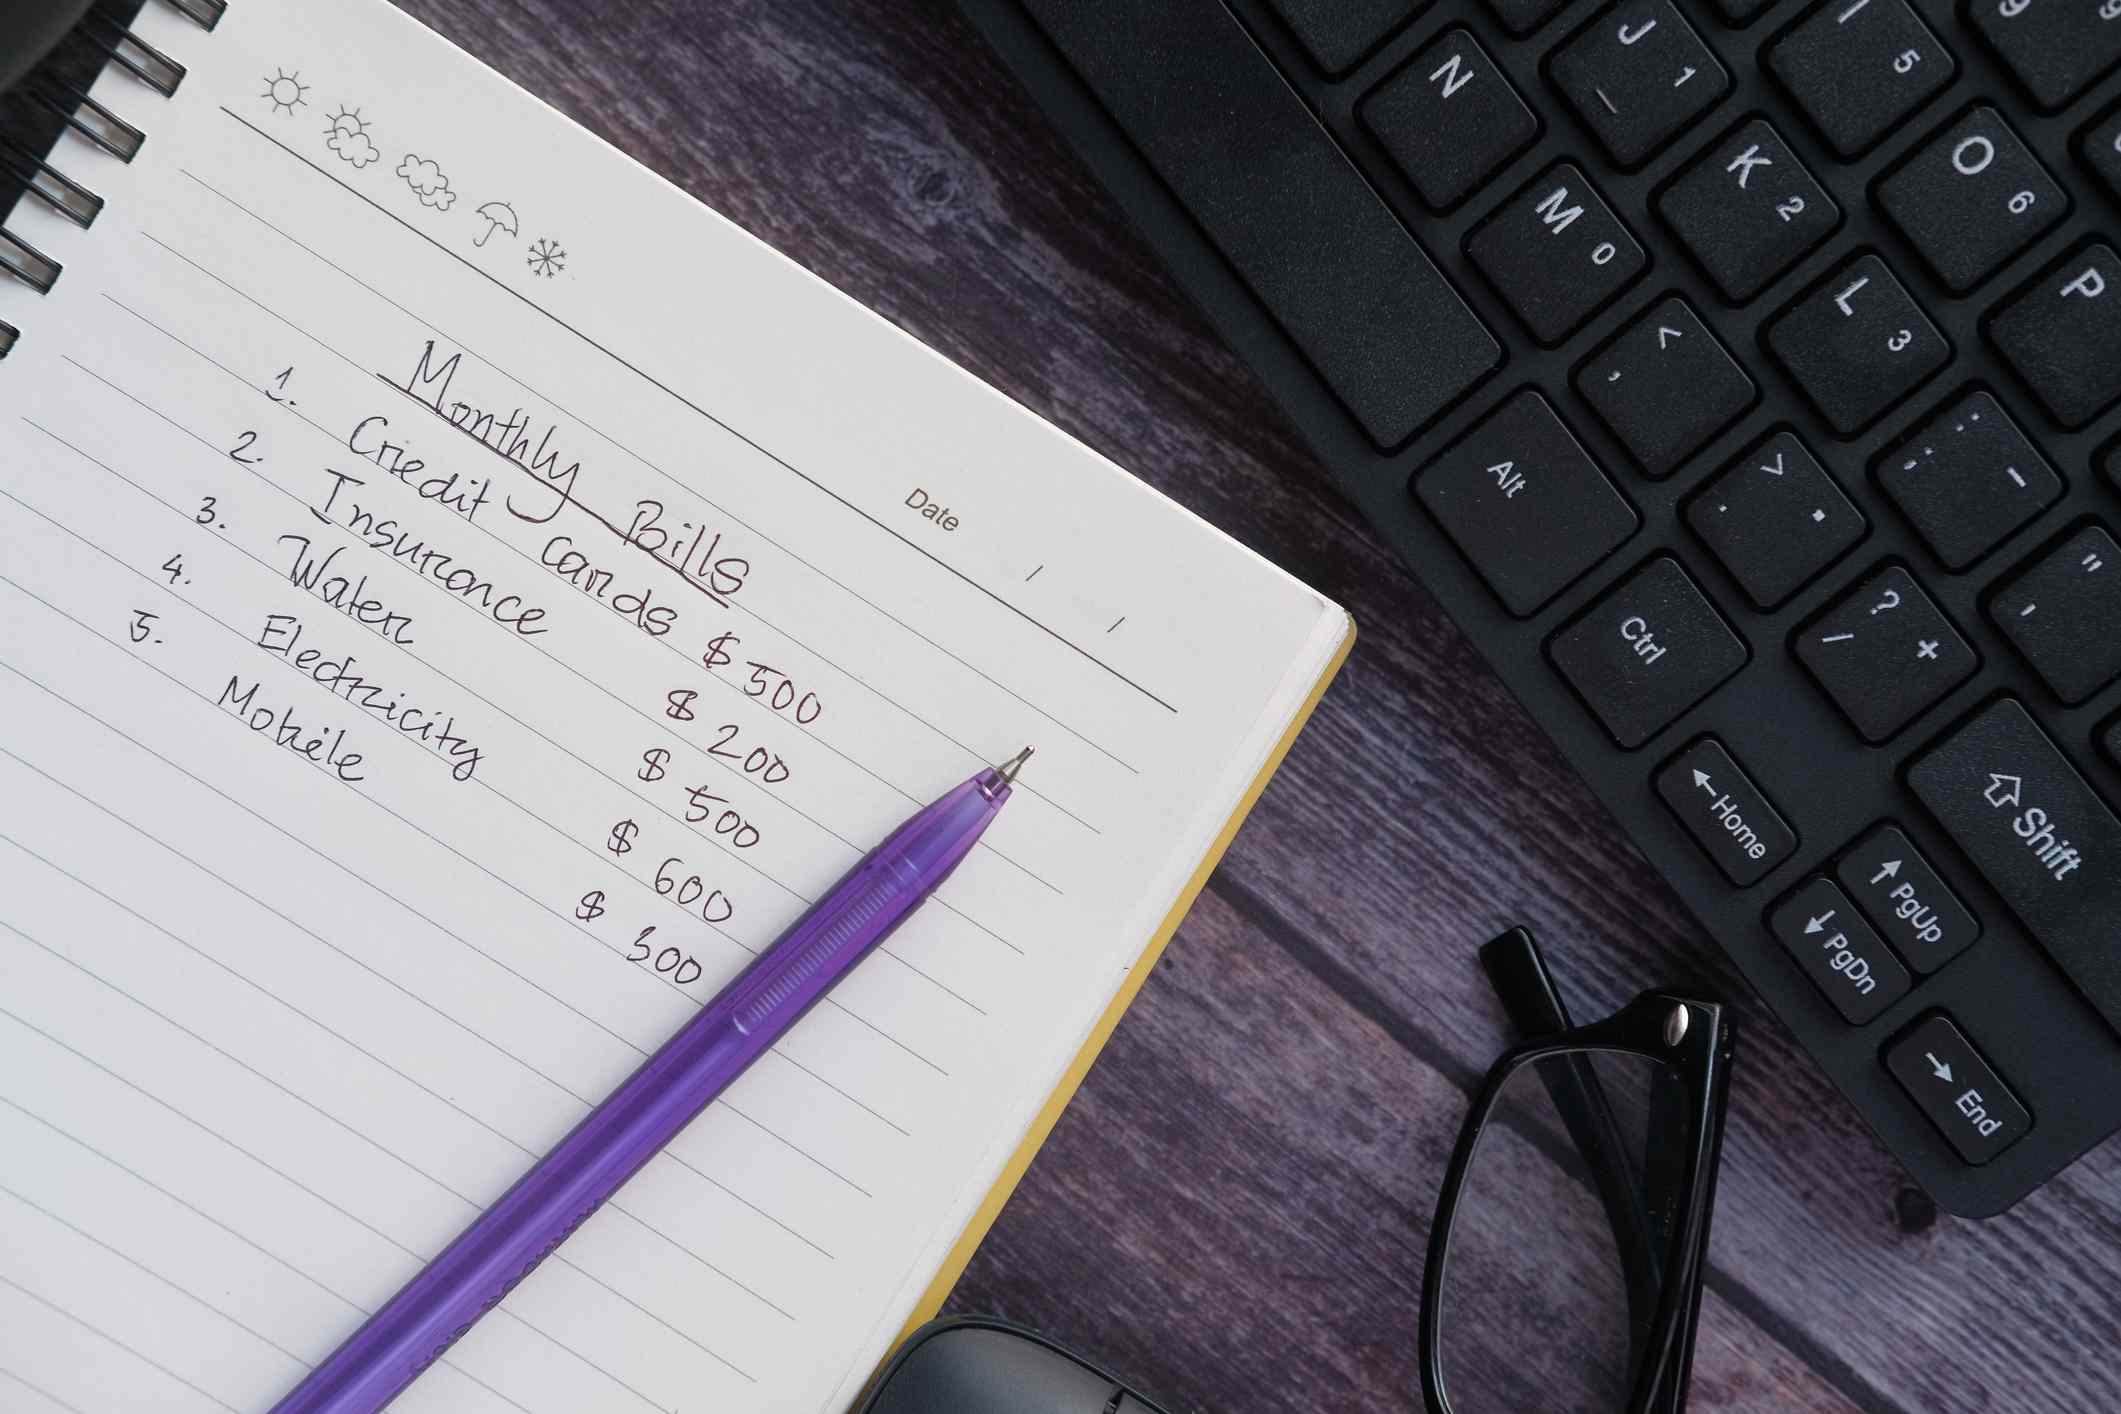 Date / /
Monthly Bills
1. Credit cards $ 500
2. Insurance $ 200
3. Water $ 500
4. Electricity $ 600
5. Mobile $ 300
N
J 1
_
I 5
9
M 0
K 2
O 6
< ,
L 3
P
Alt
> . .
: ; -
Ctrl
? / +
" '
←Home
⇧Shift
↑PgUp
↓PgDn
→End